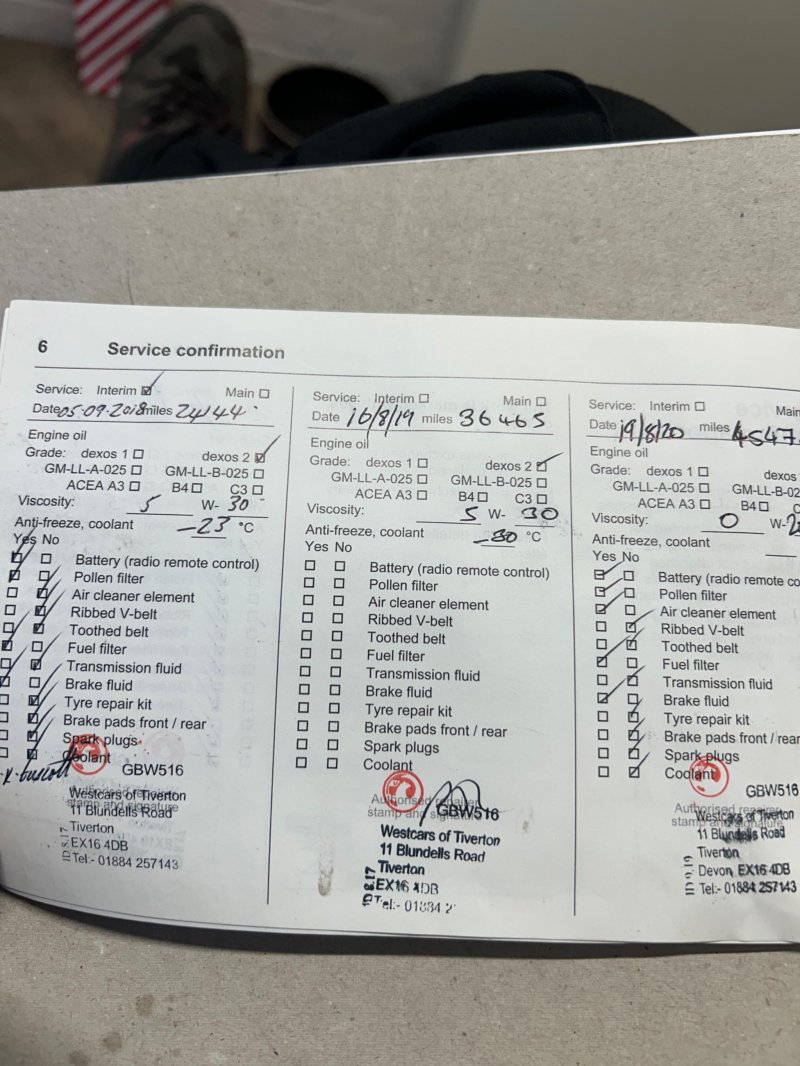 6 Service confirmation
Service: Interim Main
Date 05-09-2018 miles 24144
Engine oil
Grade: dexos 1 dexos 2
GM-LL-A-025 GM-LL-B-025
ACEA A3 B4 C3
Viscosity: 5 W- 30
Anti-freeze, coolant -23 °C
Yes No
Battery (radio remote control)
Pollen filter
Air cleaner element
Ribbed V-belt
Toothed belt
Fuel filter
Transmission fluid
Brake fluid
Tyre repair kit
Brake pads front / rear
Spark plugs
Coolant
GBW516
Westcars of Tiverton
stamp and signature
11 Blundells Road
Tiverton
EX16 4DB
Tel:- 01884 257143
Service: Interim Main
Date 16/8/19 miles 36465
Engine oil
Grade: dexos 1 dexos 2
GM-LL-A-025 GM-LL-B-025
ACEA A3 B4 C3
Viscosity: 5 W- 30
Anti-freeze, coolant -30 °C
Yes No
Battery (radio remote control)
Pollen filter
Air cleaner element
Ribbed V-belt
Toothed belt
Fuel filter
Transmission fluid
Brake fluid
Tyre repair kit
Brake pads front / rear
Spark plugs
Coolant
Authorised
stamp and GBW516
Westcars of Tiverton
11 Blundells Road
Tiverton
EX16 4DB
Tel:- 01884 2
Service: Interim Main
Date 19/8/20 miles 4547
Engine oil
Grade: dexos 1 dexos
GM-LL-A-025 GM-LL-B-02
ACEA A3 B4 C
Viscosity: 0 W-2
Anti-freeze, coolant
Yes No
Battery (radio remote co
Pollen filter
Air cleaner element
Ribbed V-belt
Toothed belt
Fuel filter
Transmission fluid
Brake fluid
Tyre repair kit
Brake pads front / rear
Spark plugs
Coolant
GBW516
Authorised repairer
stamp and signature
Westcars of Tiverton
11 Blundells Road
Tiverton
Devon, EX16 4DB
Tel:- 01884 257143